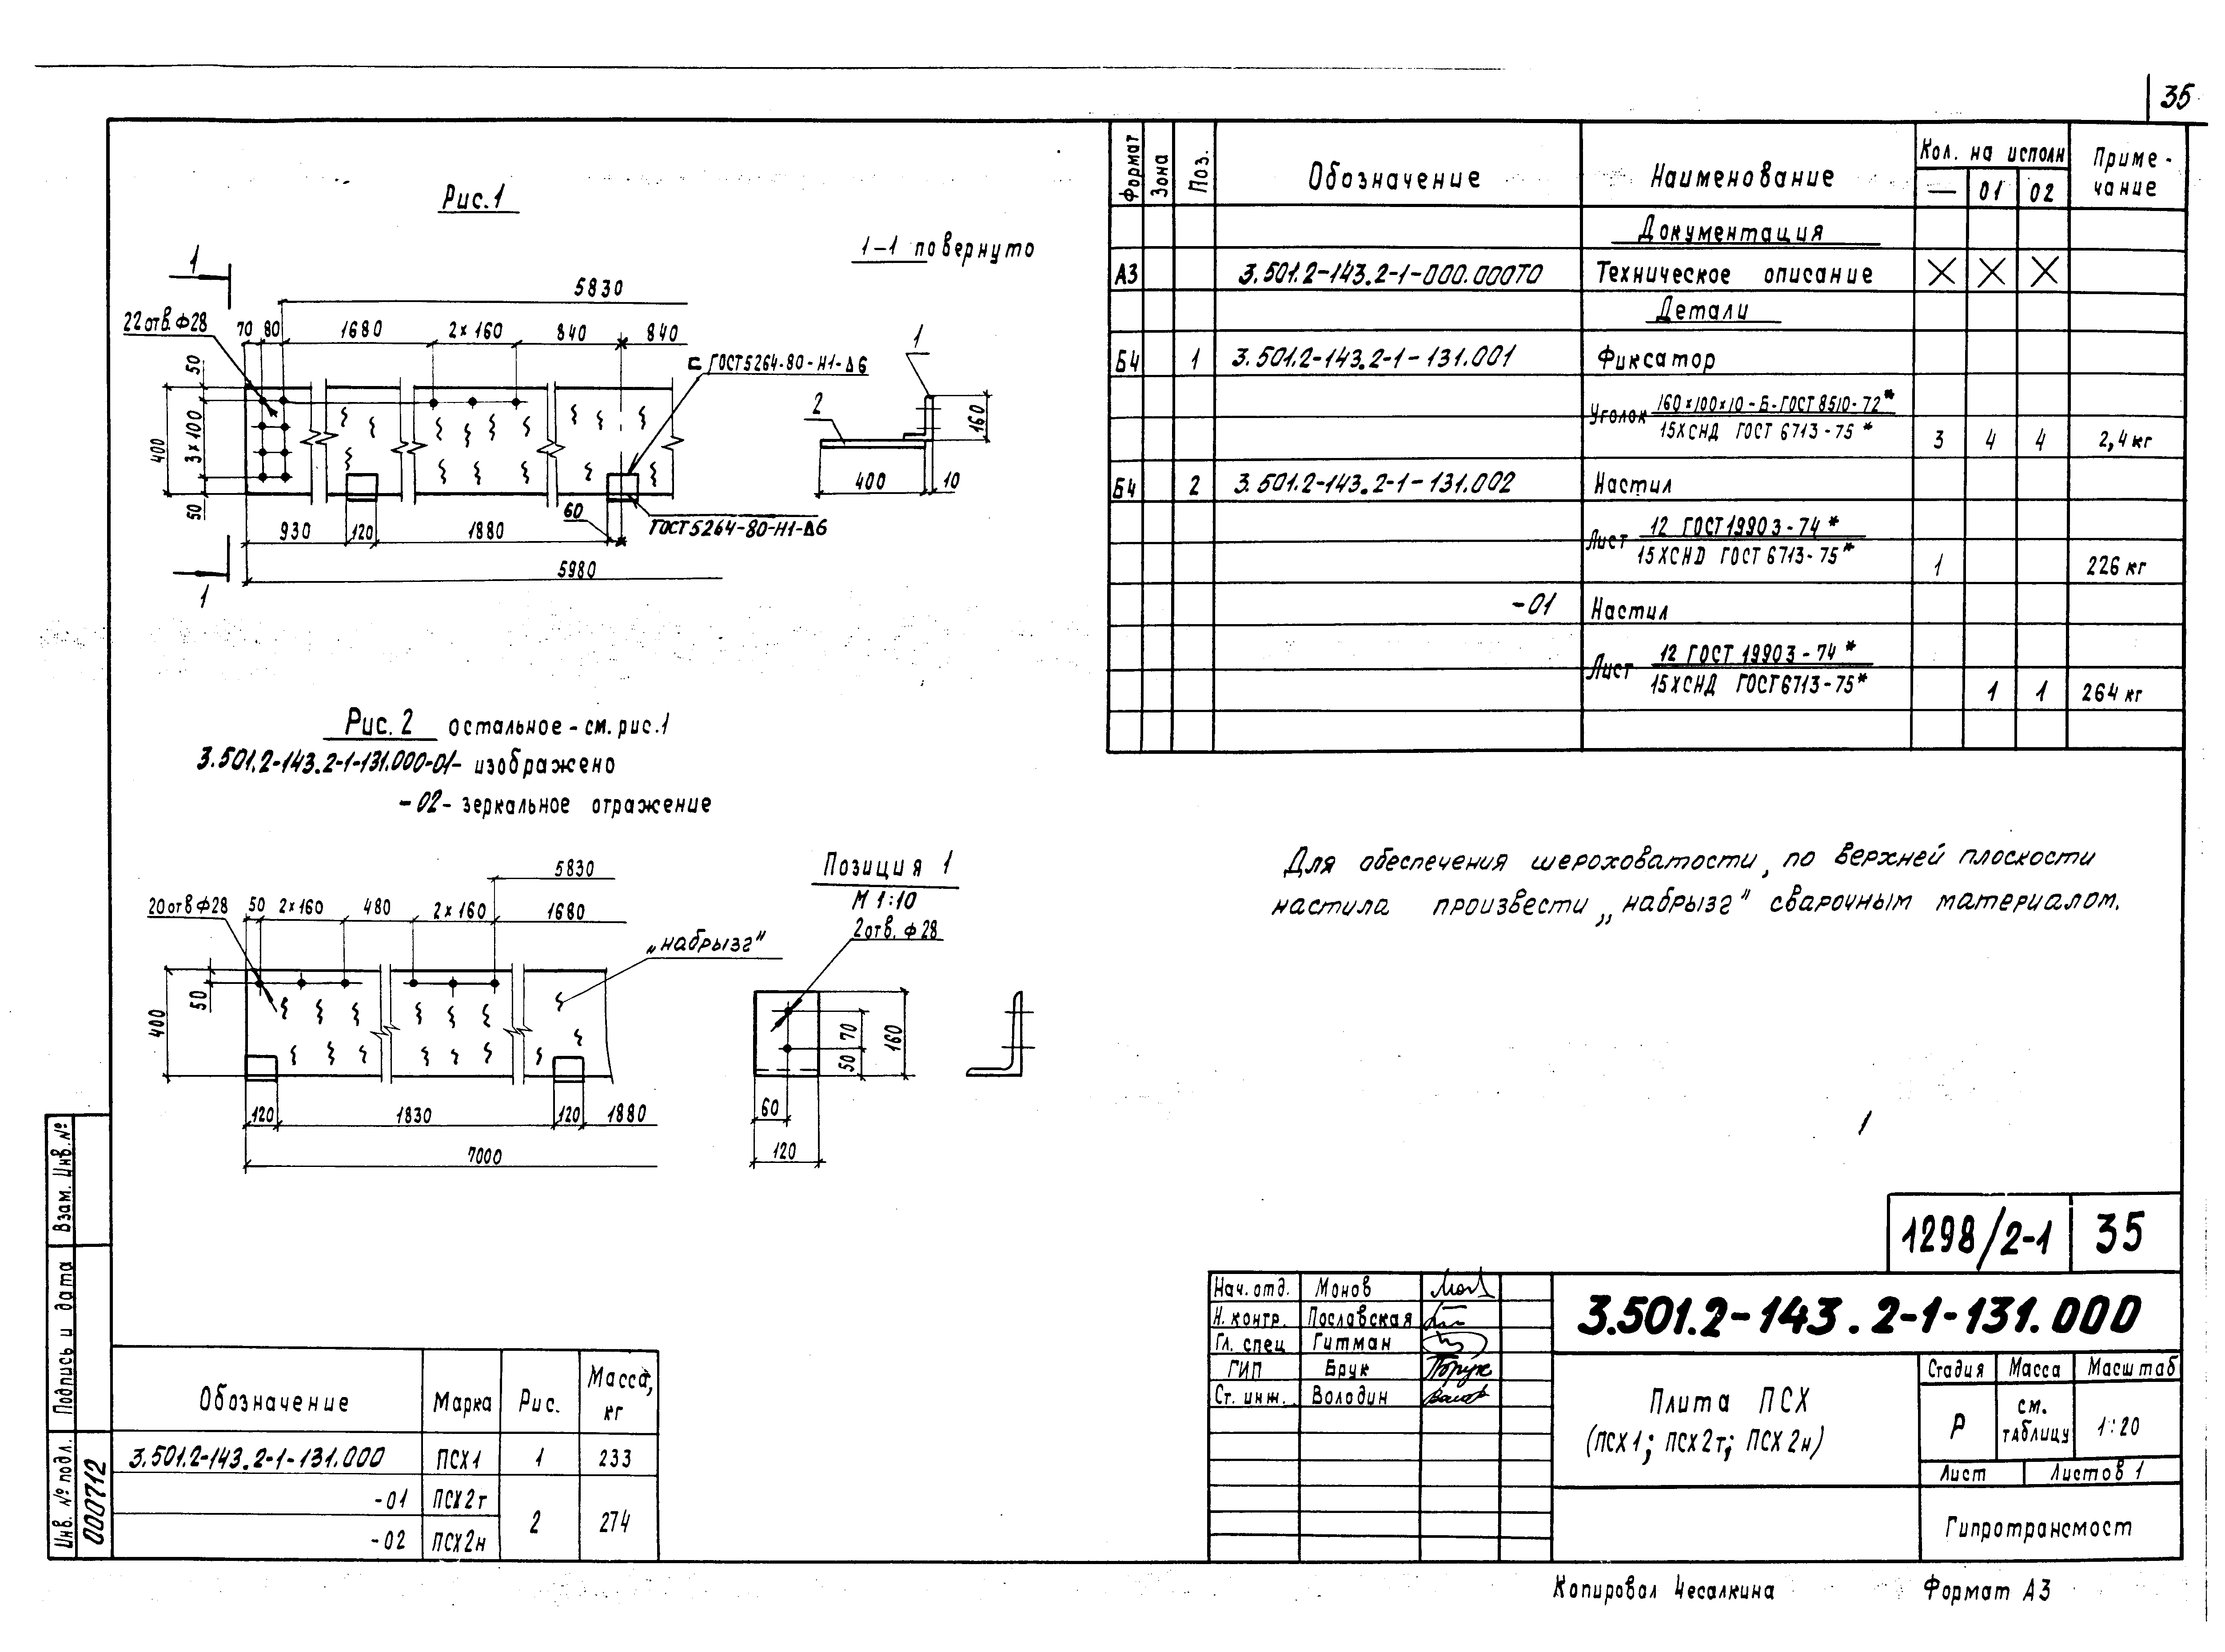 35
Рис.1
1-1 повернуто
1
5830
22 отв. Ф28
70 80 1680 2×160 840 840
ГОСТ 5264-80-Н1-Δ6
50
3×100
400
50
930 120 1880 60
ГОСТ 5264-80-Н1-Δ6
5980
1
1
2
160
400 10
Рис. 2 остальное - см. рис.1
3.501.2-143.2-1-131.000-01- изображено
-02- зеркальное отражение
5830
20 отв Ф28 50 2×160 480 2×160 1680
„набрызг"
50
400
120 1830 120 1880
7000
Позиция 1
М 1:10
2 отв. Ф28
70
50
160
60
120
Формат Зона Поз. Обозначение Наименование Кол. на исполн Приме-чание
— 01 02
Документация
А3 3.501.2-143.2-1-000.000ТО Техническое описание X X X
Детали
Б4 1 3.501.2-143.2-1-131.001 Фиксатор
Уголок 160×100×10-Б-ГОСТ 8510-72*
15ХСНД ГОСТ 6713-75* 3 4 4 2,4 кг
Б4 2 3.501.2-143.2-1-131.002 Настил
Лист 12 ГОСТ 19903-74*
15ХСНД ГОСТ 6713-75* 1 226 кг
-01 Настил
Лист 12 ГОСТ 19903-74*
15ХСНД ГОСТ 6713-75* 1 1 264 кг
Для обеспечения шероховатости, по верхней плоскости
настила произвести „набрызг" сварочным материалом.
1298/2-1 35
Нач. отд. Монов
Н. контр. Пославская
Гл. спец Гитман
ГИП Брук
Ст. инж. Володин
3.501.2-143.2-1-131.000
Плита ПСХ
(ПСХ1; ПСХ2т; ПСХ2н)
Стадия Масса Масштаб
Р см. таблицу 1:20
Лист Листов 1
Гипротрансмост
Копировал Чесалкина Формат А3
Обозначение Марка Рис. Масса, кг
3.501.2-143.2-1-131.000 ПСХ1 1 233
-01 ПСХ2т
2 274
-02 ПСХ2н
Взам. Инв. №
Подпись и дата
Инв. № подл.
000712